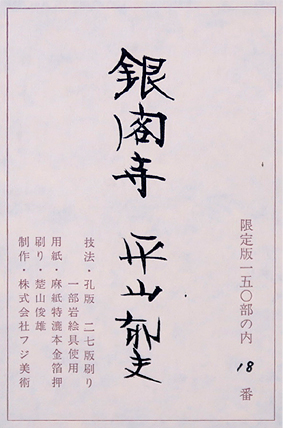 限定版一五〇部の内 18 番
銀閣寺 平山郁夫
技法・孔版 二七版刷り
一部岩絵具使用
用紙・麻紙特漉本金箔押
刷り・楚山俊雄
制作・株式会社フジ美術